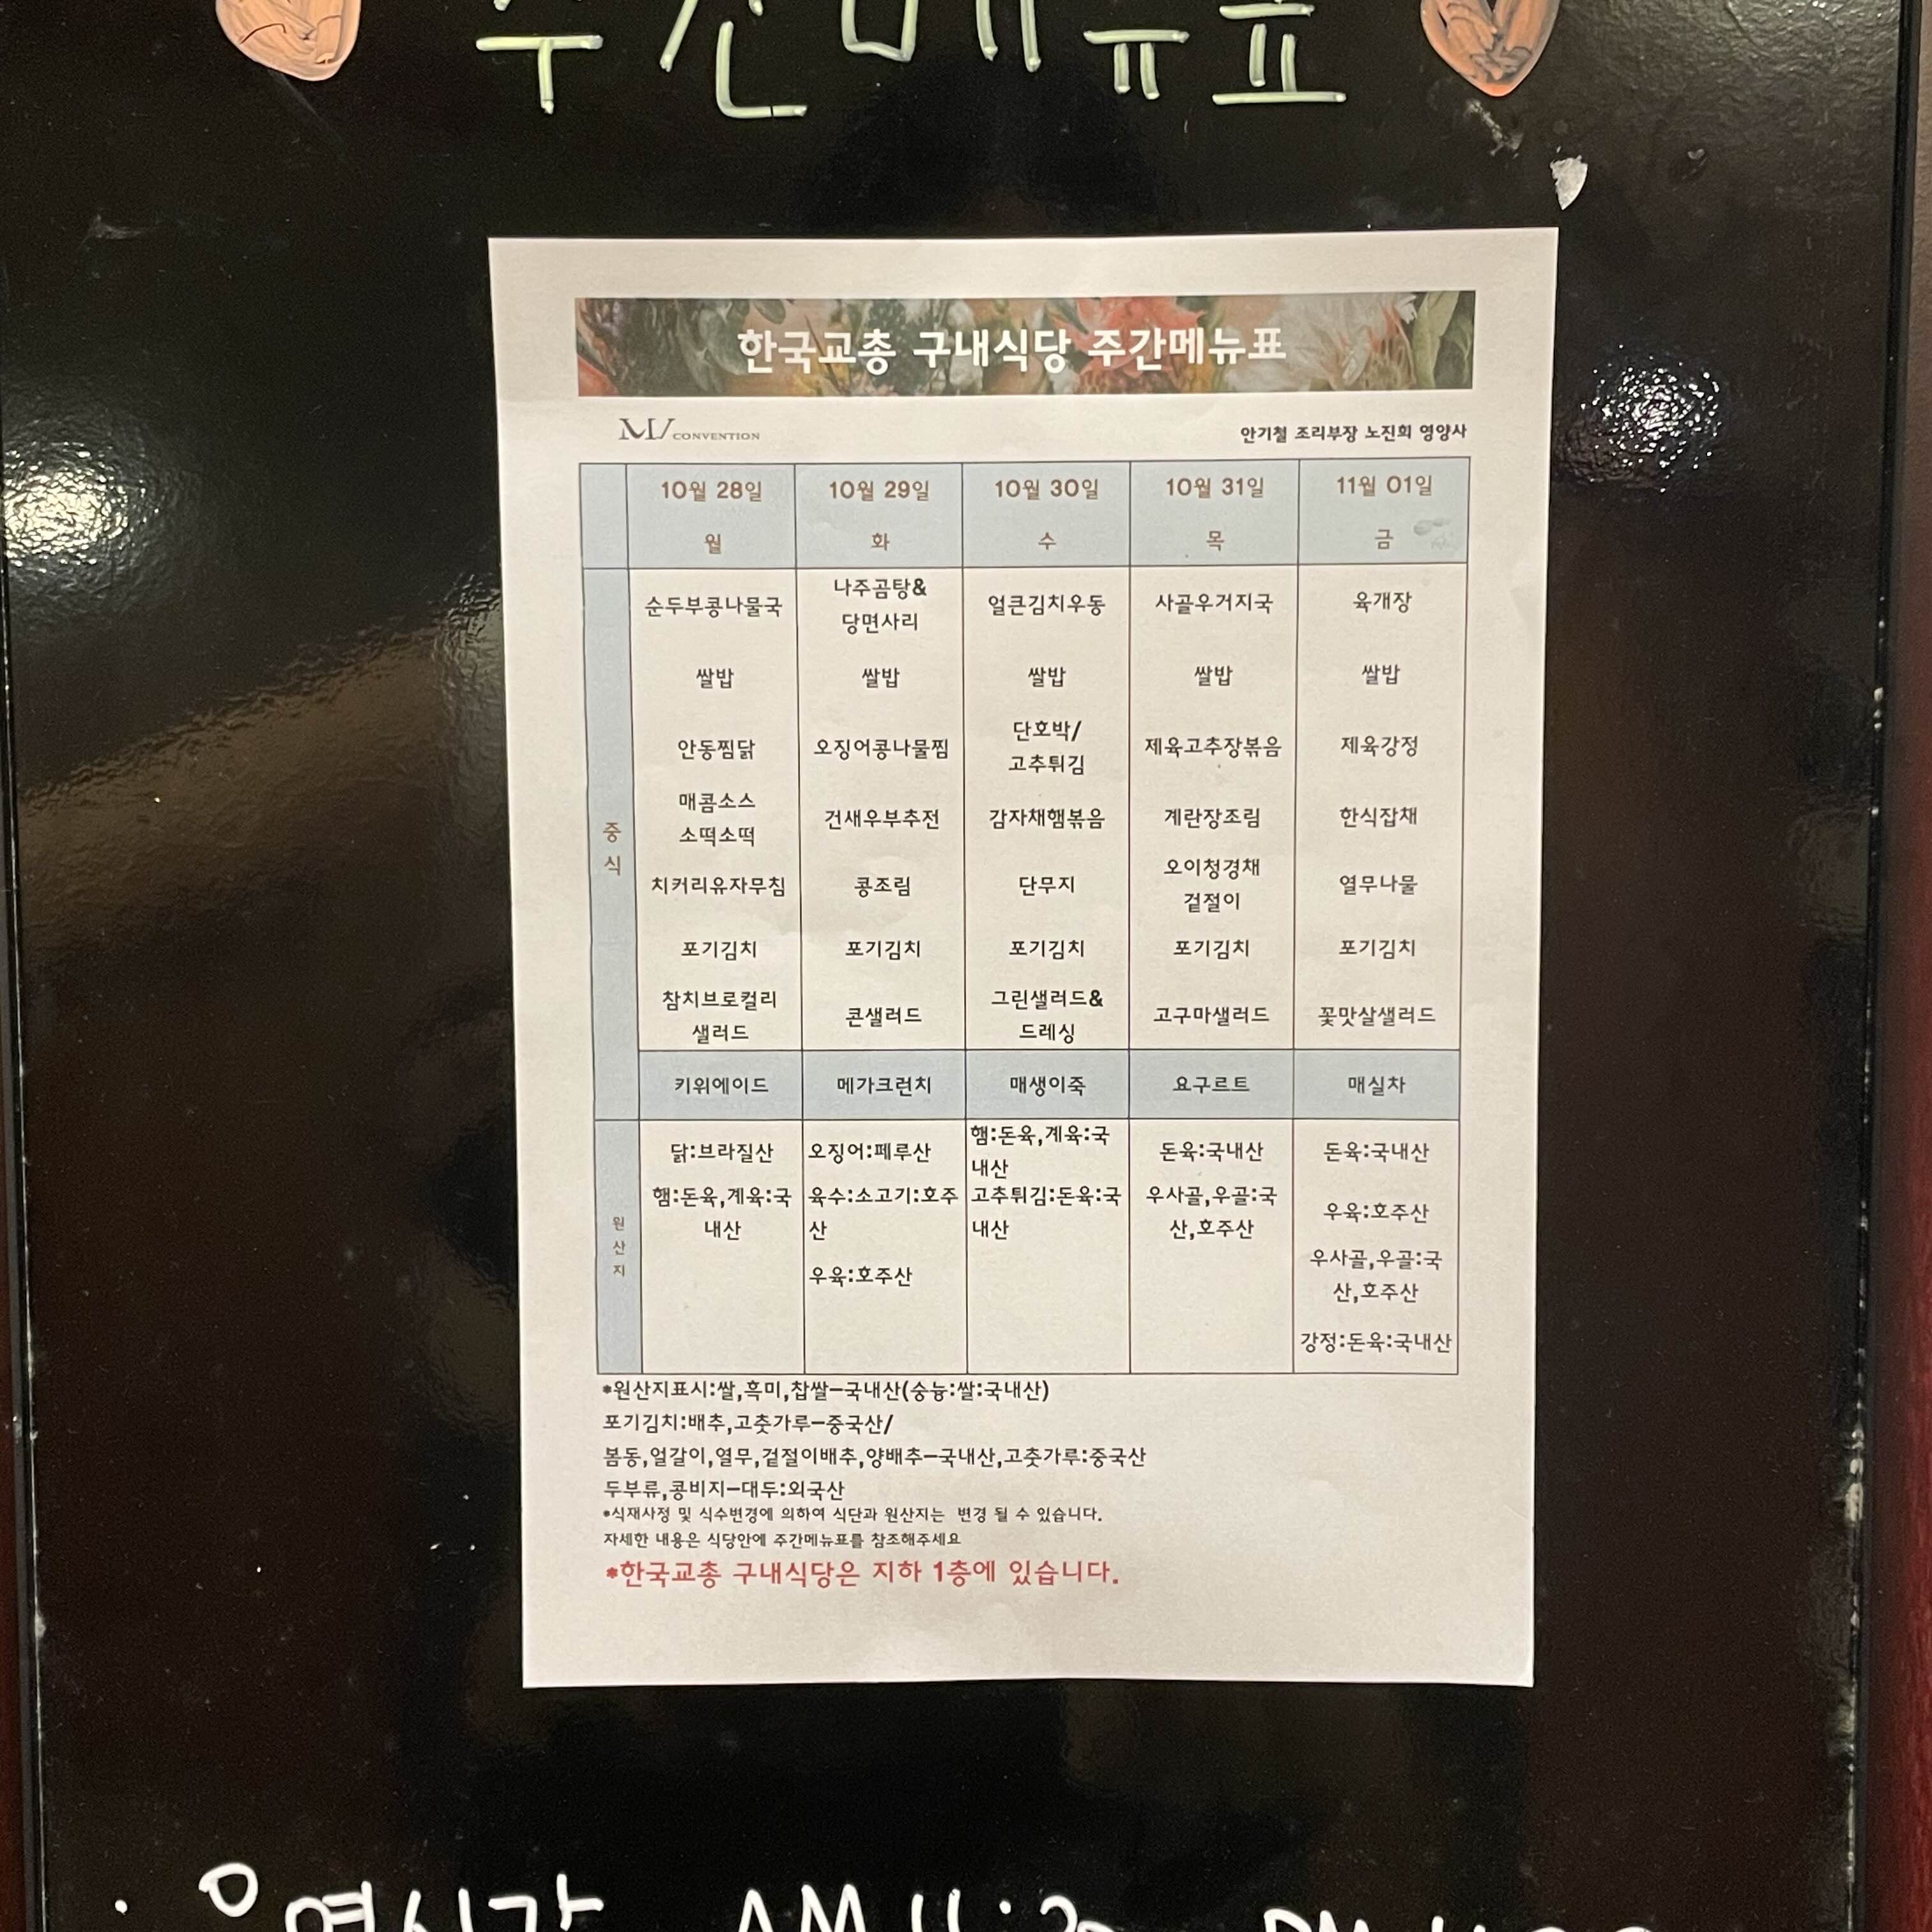 주간메뉴표
한국교총 구내식당 주간메뉴표
MV CONVENTION
안기철 조리부장 노진희 영양사
10월 28일 10월 29일 10월 30일 10월 31일 11월 01일
월 화 수 목 금
중식
순두부콩나물국
쌀밥
안동찜닭
매콤소스
소떡소떡
치커리유자무침
포기김치
참치브로컬리
샐러드
키위에이드
나주곰탕&
당면사리
쌀밥
오징어콩나물찜
건새우부추전
콩조림
포기김치
콘샐러드
메가크런치
얼큰김치우동
쌀밥
단호박/
고추튀김
감자채햄볶음
단무지
포기김치
그린샐러드&
드레싱
매생이죽
사골우거지국
쌀밥
제육고추장볶음
계란장조림
오이청경채
겉절이
포기김치
고구마샐러드
요구르트
육개장
쌀밥
제육강정
한식잡채
열무나물
포기김치
꽃맛살샐러드
매실차
원산지
닭:브라질산
햄:돈육,계육:국
내산
오징어:페루산
육수:소고기:호주
산
우육:호주산
햄:돈육,계육:국
내산
고추튀김:돈육:국
내산
돈육:국내산
우사골,우골:국
산,호주산
돈육:국내산
우육:호주산
우사골,우골:국
산,호주산
강정:돈육:국내산
*원산지표시:쌀,흑미,찹쌀-국내산(숭늉:쌀:국내산)
포기김치:배추,고춧가루-중국산/
봄동,얼갈이,열무,겉절이배추,양배추-국내산,고춧가루:중국산
두부류,콩비지-대두:외국산
*식재사정 및 식수변경에 의하여 식단과 원산지는 변경 될 수 있습니다.
자세한 내용은 식당안에 주간메뉴표를 참조해주세요
*한국교총 구내식당은 지하 1층에 있습니다.
운영시간 AM 11:30